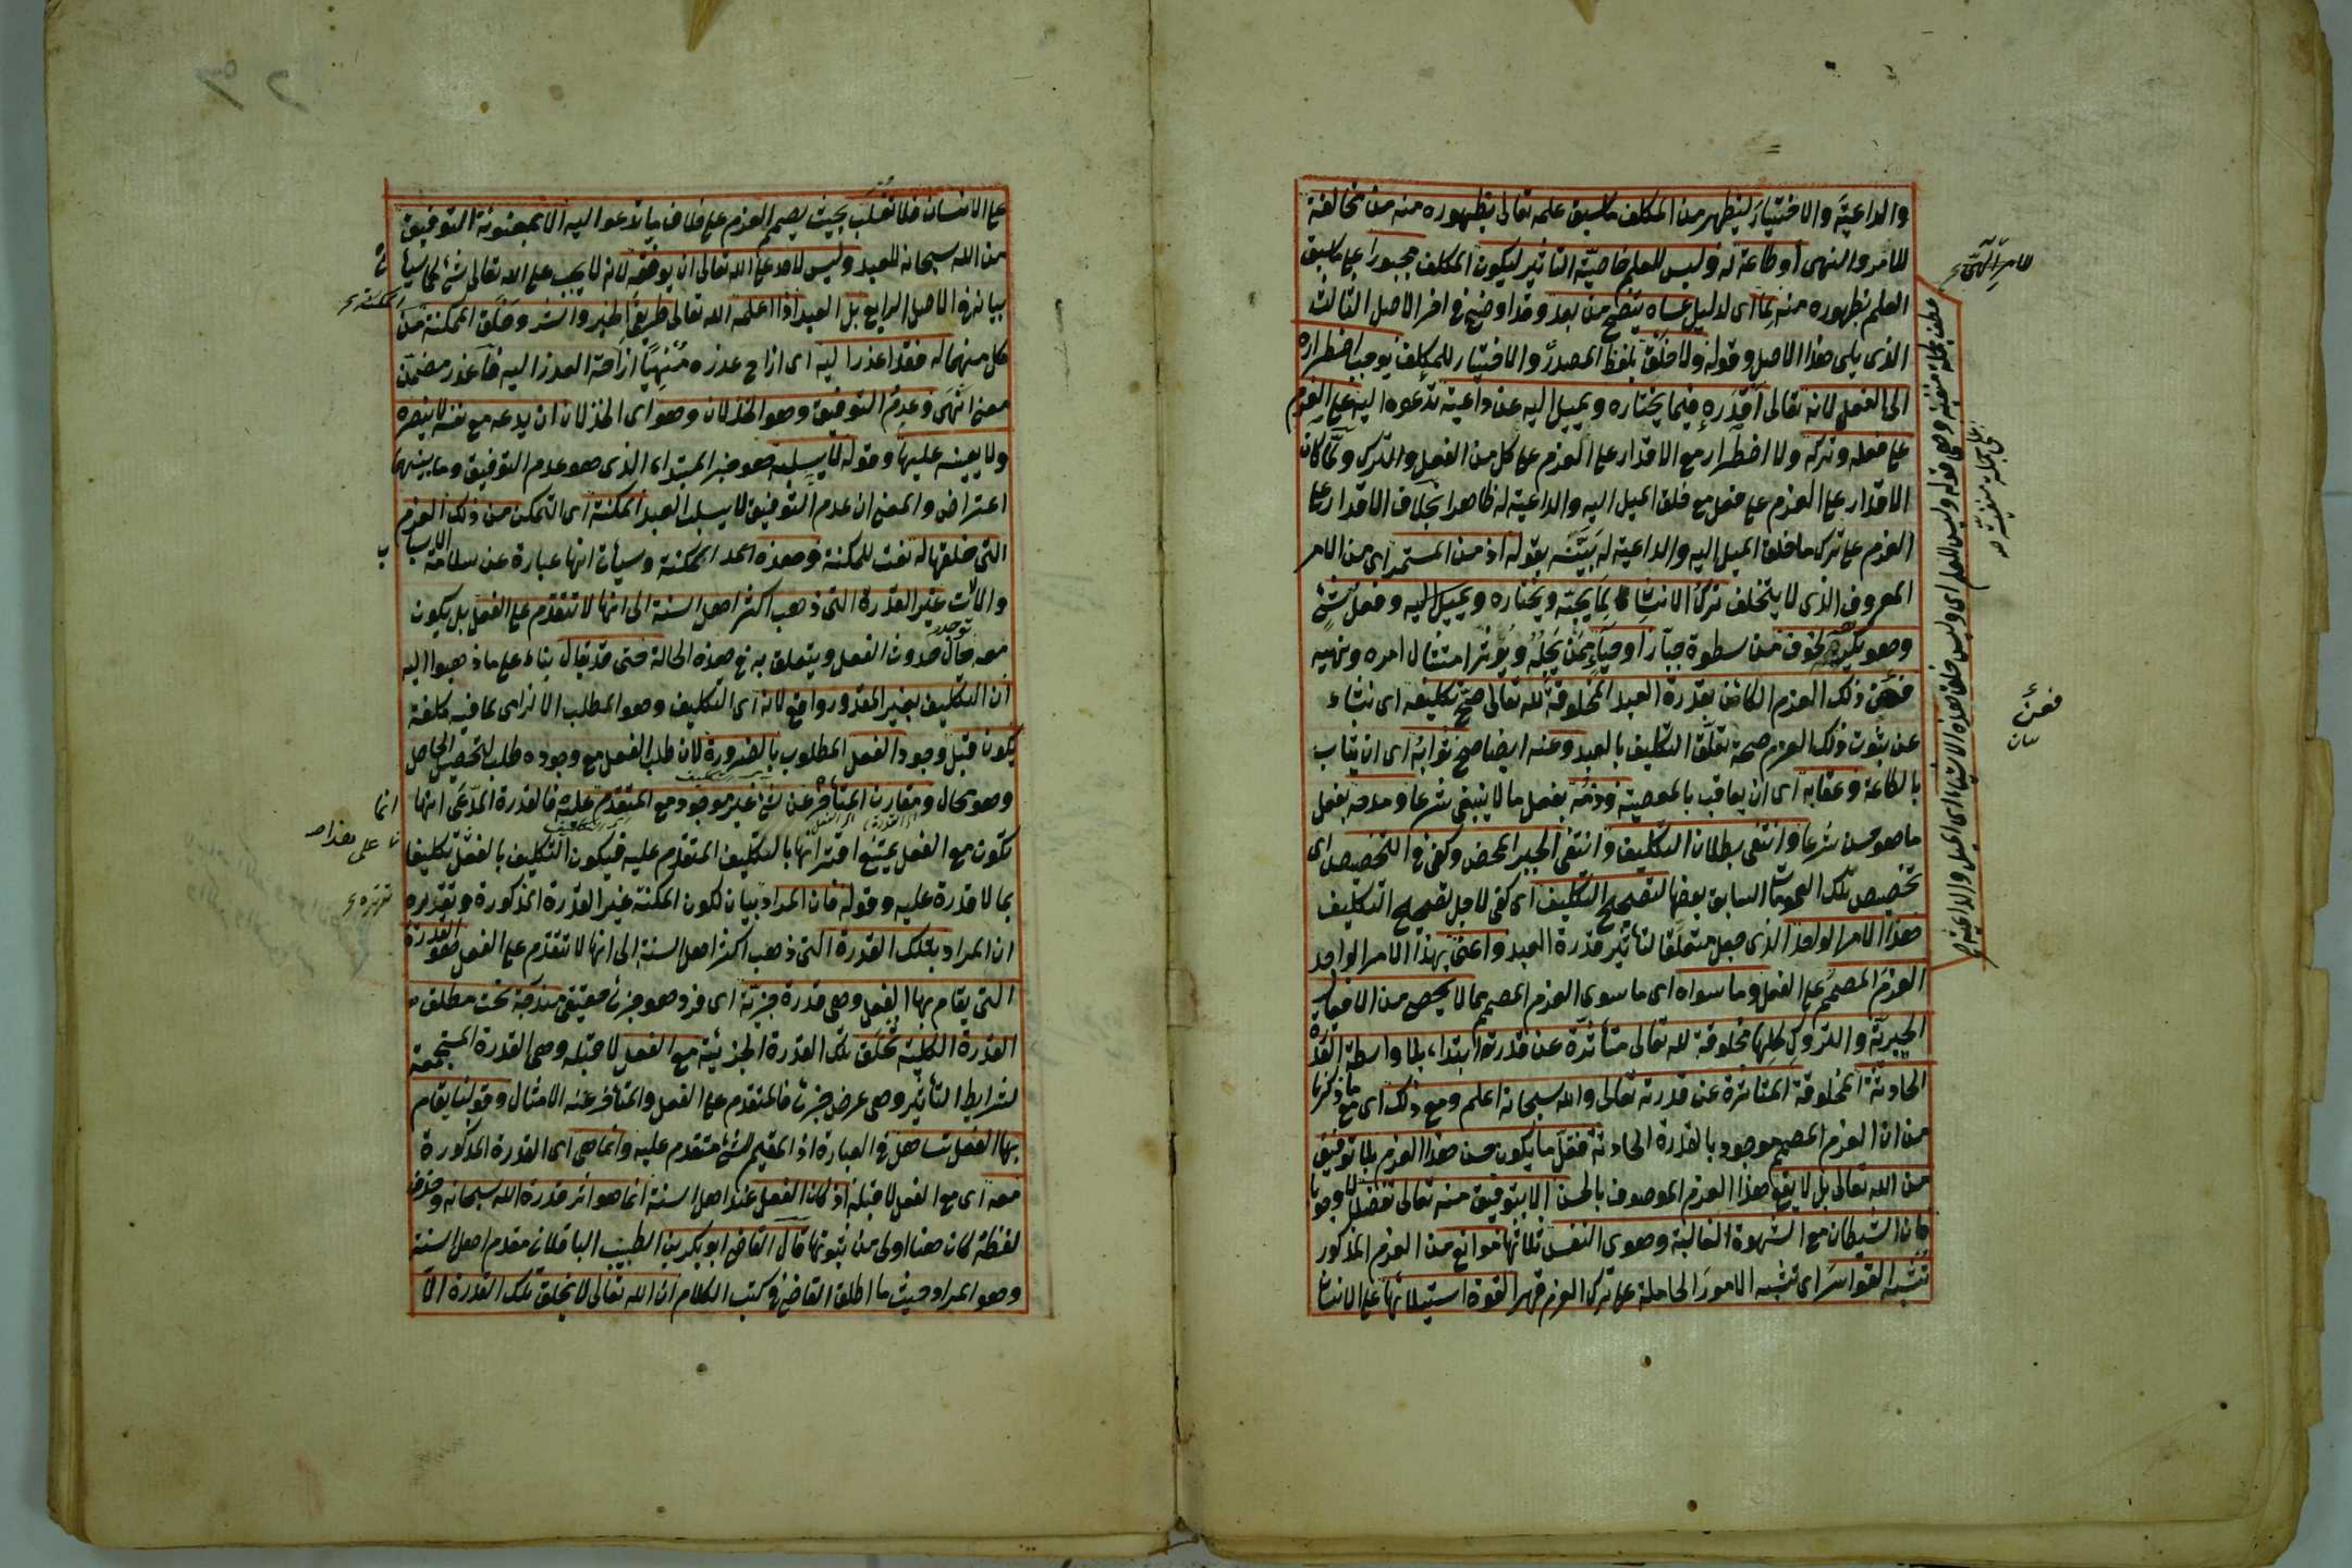 والداعية والاختيار ليظهر من المكلف ما سبق علمه تعالى بظهوره منه من مخالفة
للامر والنهى او طاعة له وليس للعلم خاصية التاثير ليكون المكلف مجبورا على ما سبق
العلم بظهوره منه لما اى لدليل عساه يتضح من بعد وقد اوضح فى اخر الاصل الثالث
الذى يلى هذا الاصل وقوله ولا خلق بلفظ المصدر والاختيار للمكلف يوجب اضطراره
الى الفعل لانه تعالى اقدره فيما يختاره ويميل اليه عن داعية تدعوه اليه على العزم
على فعله وتركه ولا اضطرار مع الاقدار على العزم على كل من الفعل والترك ولما كان
الاقدار على العزم على فعل مع خلق الميل اليه والداعية له ظاهرا بخلاف الاقدار على
العزم على ترك ما خلق الميل اليه والداعية له بينه بقوله اذ من المستمر اى من الامر
المعروف الذى لا يتخلف ترك الانسان لما يحبه ويختاره ويميل اليه وفعل شئ
وهو يكرهه لخوف من سطوة جبار او حياء ممن يجله ويؤثر امتثال امره ونهيه
فعن ذلك العزم الكائن بقدرة العبد المخلوقة لله تعالى صح تكليفه اى نشاء
عن ثبوت ذلك العزم صحة تعلق التكليف بالعبد وعنه ايضا صح ثوابه اى ان يثاب
بالطاعة وعقابه اى ان يعاقب بالمعصية وذمه بفعل ما لا ينبغى شرعا ومدحه بفعل
ما هو حسن شرعا وانتفى بطلان التكليف وانتفى الجبر المحض وكفى فى التخصيص اى
تخصيص تلك العمومات السابق بعضها لتصحيح التكليف اى كفى لاجل تصحيح التكليف
هذا الامر الواحد الذى جعل متعلقا لتأثير قدرة العبد واعنى بهذا الامر الواحد
العزم المصمم على الفعل وما سواه اى ما سوى العزم المصمم مما لا يحصى من الافعال
الجبرية والتروك كلها مخلوقة لله تعالى متأثرة عن قدرته ابتداء بلا واسطة القدرة
الحادثة المخلوقة المتاثرة عن قدرته تعالى والله سبحانه اعلم ومع ذلك اى مع ما ذكرنا
من ان العزم المصمم موجود بالقدرة الحادثة فقل ما يكون حسن هذا العزم بلا توفيق
من الله تعالى بل لا يقع هذا العزم الموصوف بالحسن الا بتوفيق منه تعالى تفضلا لا وجوبا
فان الشيطان مع الشهوة الغالبة وهوى النفس ثلاثتها موانع من العزم المذكور
تشبه القواسر اى تشبه الامور الحاملة على ترك العزم قهرا لقوة استيلائها على الانسان
للامر الهى
عطف جملة منفية وهى قوله وليس للعلم اى وليس خلق هذه الاشياء اى الميل والداعية
على جملة منفية
فعن
بيان
على الانسان فلا تغلب بحيث يصمم العزم على خلاف ما تدعوا اليه الا بمعونة التوفيق
من الله سبحانه للعبد وليس لاحد على الله تعالى ان يوفقه لانه لا يجب على الله تعالى شئ كما سيأ
بيانه فى الاصل الرابع بل العبد اذا اعلمه الله تعالى طريق الخير والشر وخلق المكنة من
كل منهما له فقد اعذر اليه اى ازاح عذره منهيا ازاحة العذر اليه فاعذر مضمن
معنى انهى وعدم التوفيق وهو الخذلان وهو اى الخذلان ان يدعه مع نفسه لا ينصره
ولا يعينه عليها وقوله لا يسلبه هو خبر المبتدا الذى هو عدم التوفيق وما بينهما
اعتراض والمعنى ان عدم التوفيق لا يسلب العبد المكنة اى التمكن من ذلك العزم
التى خلقها له نعت للمكنة وهذه احد المكنة وسيأتى انها عبارة عن سلامة الاسباب
والالات غير القدرة التى ذهب اكثر اهل السنة الى انها لا تتقدم على الفعل بل يكون
توجد
معه حال حدوث الفعل ويتعلق به فى هذه الحالة حتى قد يقال بناء على ما ذهبوا اليه
ان التكليف بغير المقدور واقع لانه اى التكليف وهو المطلب الالزامى بما فيه كلفة
يكون قبل وجود الفعل المطلوب بالضرورة لان طلب الفعل مع وجوده طلب لتحصيل الحاصل
وهو محال ومقارن المتأخر عن شئ غير موجود مع المتقدم عليه فالقدرة المدعى انها
تكون مع الفعل يمتنع اقترانها بالتكليف المتقدم عليه فيكون التكليف بالفعل تكليفا
بما لا قدرة عليه وقوله فان المراد بيان لكون المكنة غير القدرة المذكورة وتقديره
ان المراد بتلك القدرة التى ذهب اكثر اهل السنة الى انها لا تتقدم على الفعل هو القدرة
التى يقام بها الفعل وهى قدرة جزئية اى فرد وهو جزئ حقيقى مندرجة تحت مطلق
القدرة الكلية تخلق تلك القدرة الجزئية مع الفعل لا قبله وهى القدرة المستجمعة
لشرايط التأثير وهى عرض جزئى فالمتقدم على الفعل والمتأخر عنه الامثال وقولنا يقام
بها الفعل تساهل فى العبارة اذ المقيم للشئ متقدم عليه وانما هى اى القدرة المذكورة
معه اى مع الفعل لا قبله اذ كان الفعل عند اهل السنة انما هو اثر قدرة الله سبحانه وحذف
لفظة كان هنا اولى من ثبوتها قال القاضى ابو بكر بن الطيب الباقلانى مقدم اهل السنة
وهو المراد حيث ما اطلق القاضى فى كتب الكلام ان الله تعالى لا يخلق تلك القدرة الا
انما
على هذا